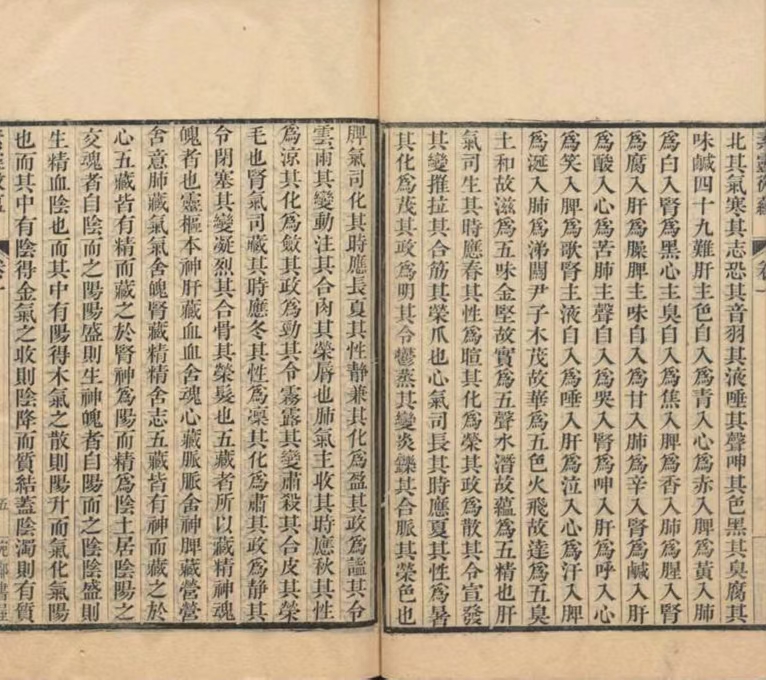 北其氣寒其志恐其音羽其液唾其聲呻其色黑其臭腐其
味鹹四十九難肝主色自入為青入心為赤入脾為黃入肺
為白入腎為黑心主臭自入為焦入脾為香入肺為腥入腎
為腐入肝為臊脾主味自入為甘入肺為辛入腎為鹹入肝
為酸入心為苦肺主聲自入為哭入腎為呻入肝為呼入心
為笑入脾為歌腎主液自入為唾入肝為泣入心為汗入脾
為涎入肺為涕關尹子木茂故華為五色火飛故達為五臭
土和故滋為五味金堅故實為五聲水潛故蘊為五精也肝
氣司生其時應春其性為暄其化為榮其政為散其令宣發
其變摧拉其合筋其榮爪也心氣司長其時應夏其性為暑
其化為茂其政為明其令鬱蒸其變炎爍其合脈其榮色也
脾氣司化其時應長夏其性靜兼其化為盈其政為謐其令
雲雨其變動注其合肉其榮唇也肺氣主收其時應秋其性
為涼其化為斂其政為勁其令霧露其變肅殺其合皮其榮
毛也腎氣司藏其時應冬其性為凜其化為肅其政為靜其
令閉塞其變凝烈其合骨其榮髮也五藏者所以藏精神魂
魄者也靈樞本神肝藏血血舍魂心藏脈脈舍神脾藏營營
舍意肺藏氣氣舍魄腎藏精精舍志五藏皆有神而藏之於
心五藏皆有精而藏之於腎神為陽而精為陰土居陰陽之
交魂者自陰而之陽陽盛則生神魄者自陽而之陰陰盛則
生精血陰也而其中有陽得木氣之散則陽升而氣化氣陽
也而其中有陰得金氣之收則陰降而質結蓋陰濁則有質
五